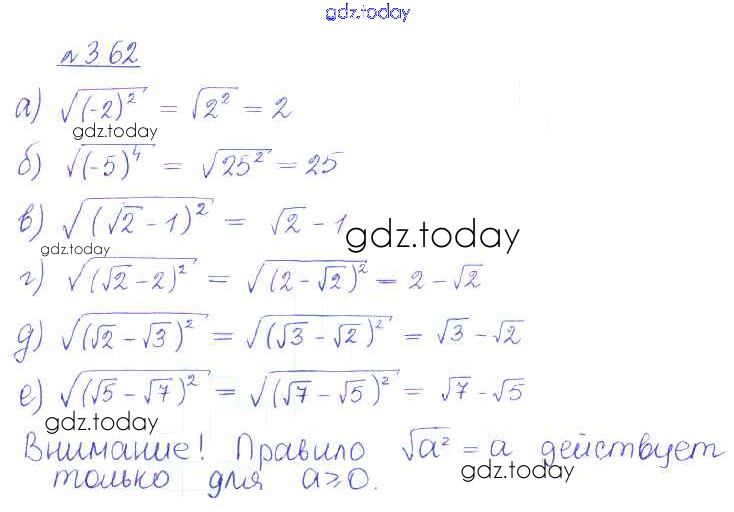 gdz.today
№ 3.62
а) √(-2)² = √2² = 2
gdz.today
б) √(-5)⁴ = √25² = 25
в) √(√2 - 1)² = √2 - 1
gdz.today
gdz.today
г) √(√2 - 2)² = √(2 - √2)² = 2 - √2
д) √(√2 - √3)² = √(√3 - √2)² = √3 - √2
е) √(√5 - √7)² = √(√7 - √5)² = √7 - √5
gdz.today
gdz.today
Внимание! Правило √a² = a действует
только для a ≥ 0.
gdz.today
gdz.today